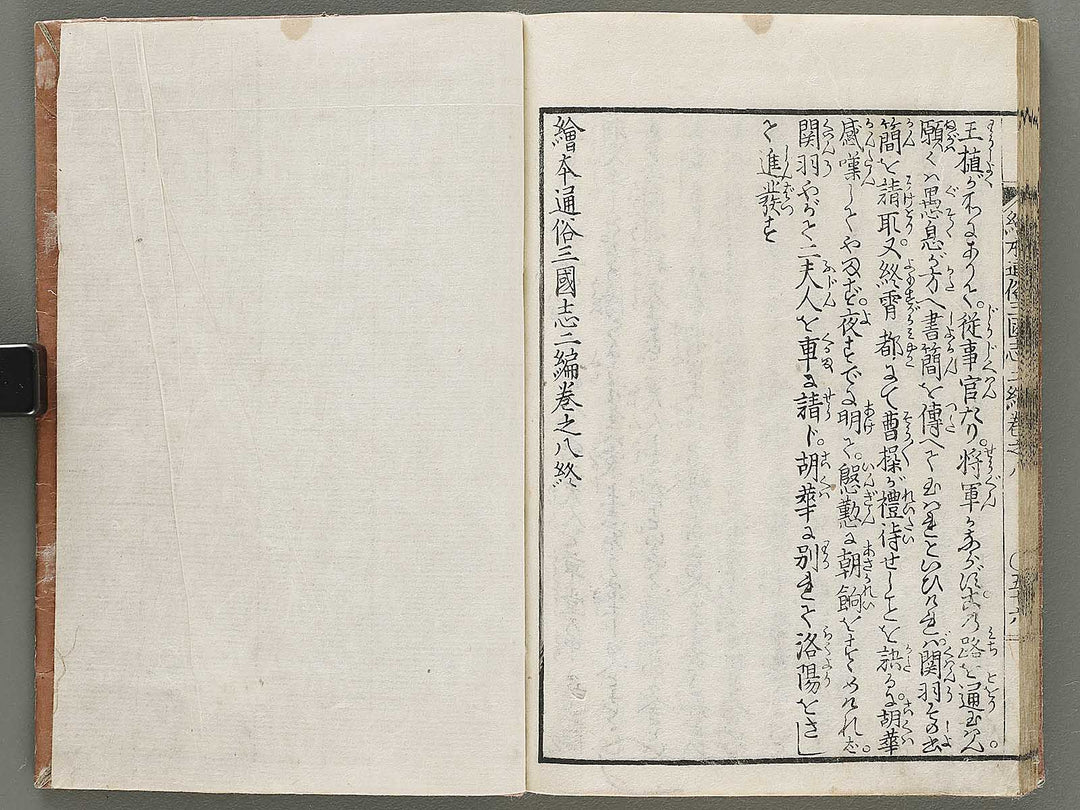 王植が下にありて。従事官たり。将軍かならず此の路を通玉はん。
願くハ愚息が方へ書簡を傳へて玉ハれといひけれバ関羽その書
簡を請取又終宵都にて曹操が禮待せしことを語る。胡華
感嘆してやまず。夜すでに明て。慇懃に朝餉をすゝめけれバ。
関羽やがて二夫人を車に請ド。胡華に別れて洛陽をさ
して進發す
繪本通俗三國志二編巻之八終
繪本通俗三國志二編巻之八
〇五十六